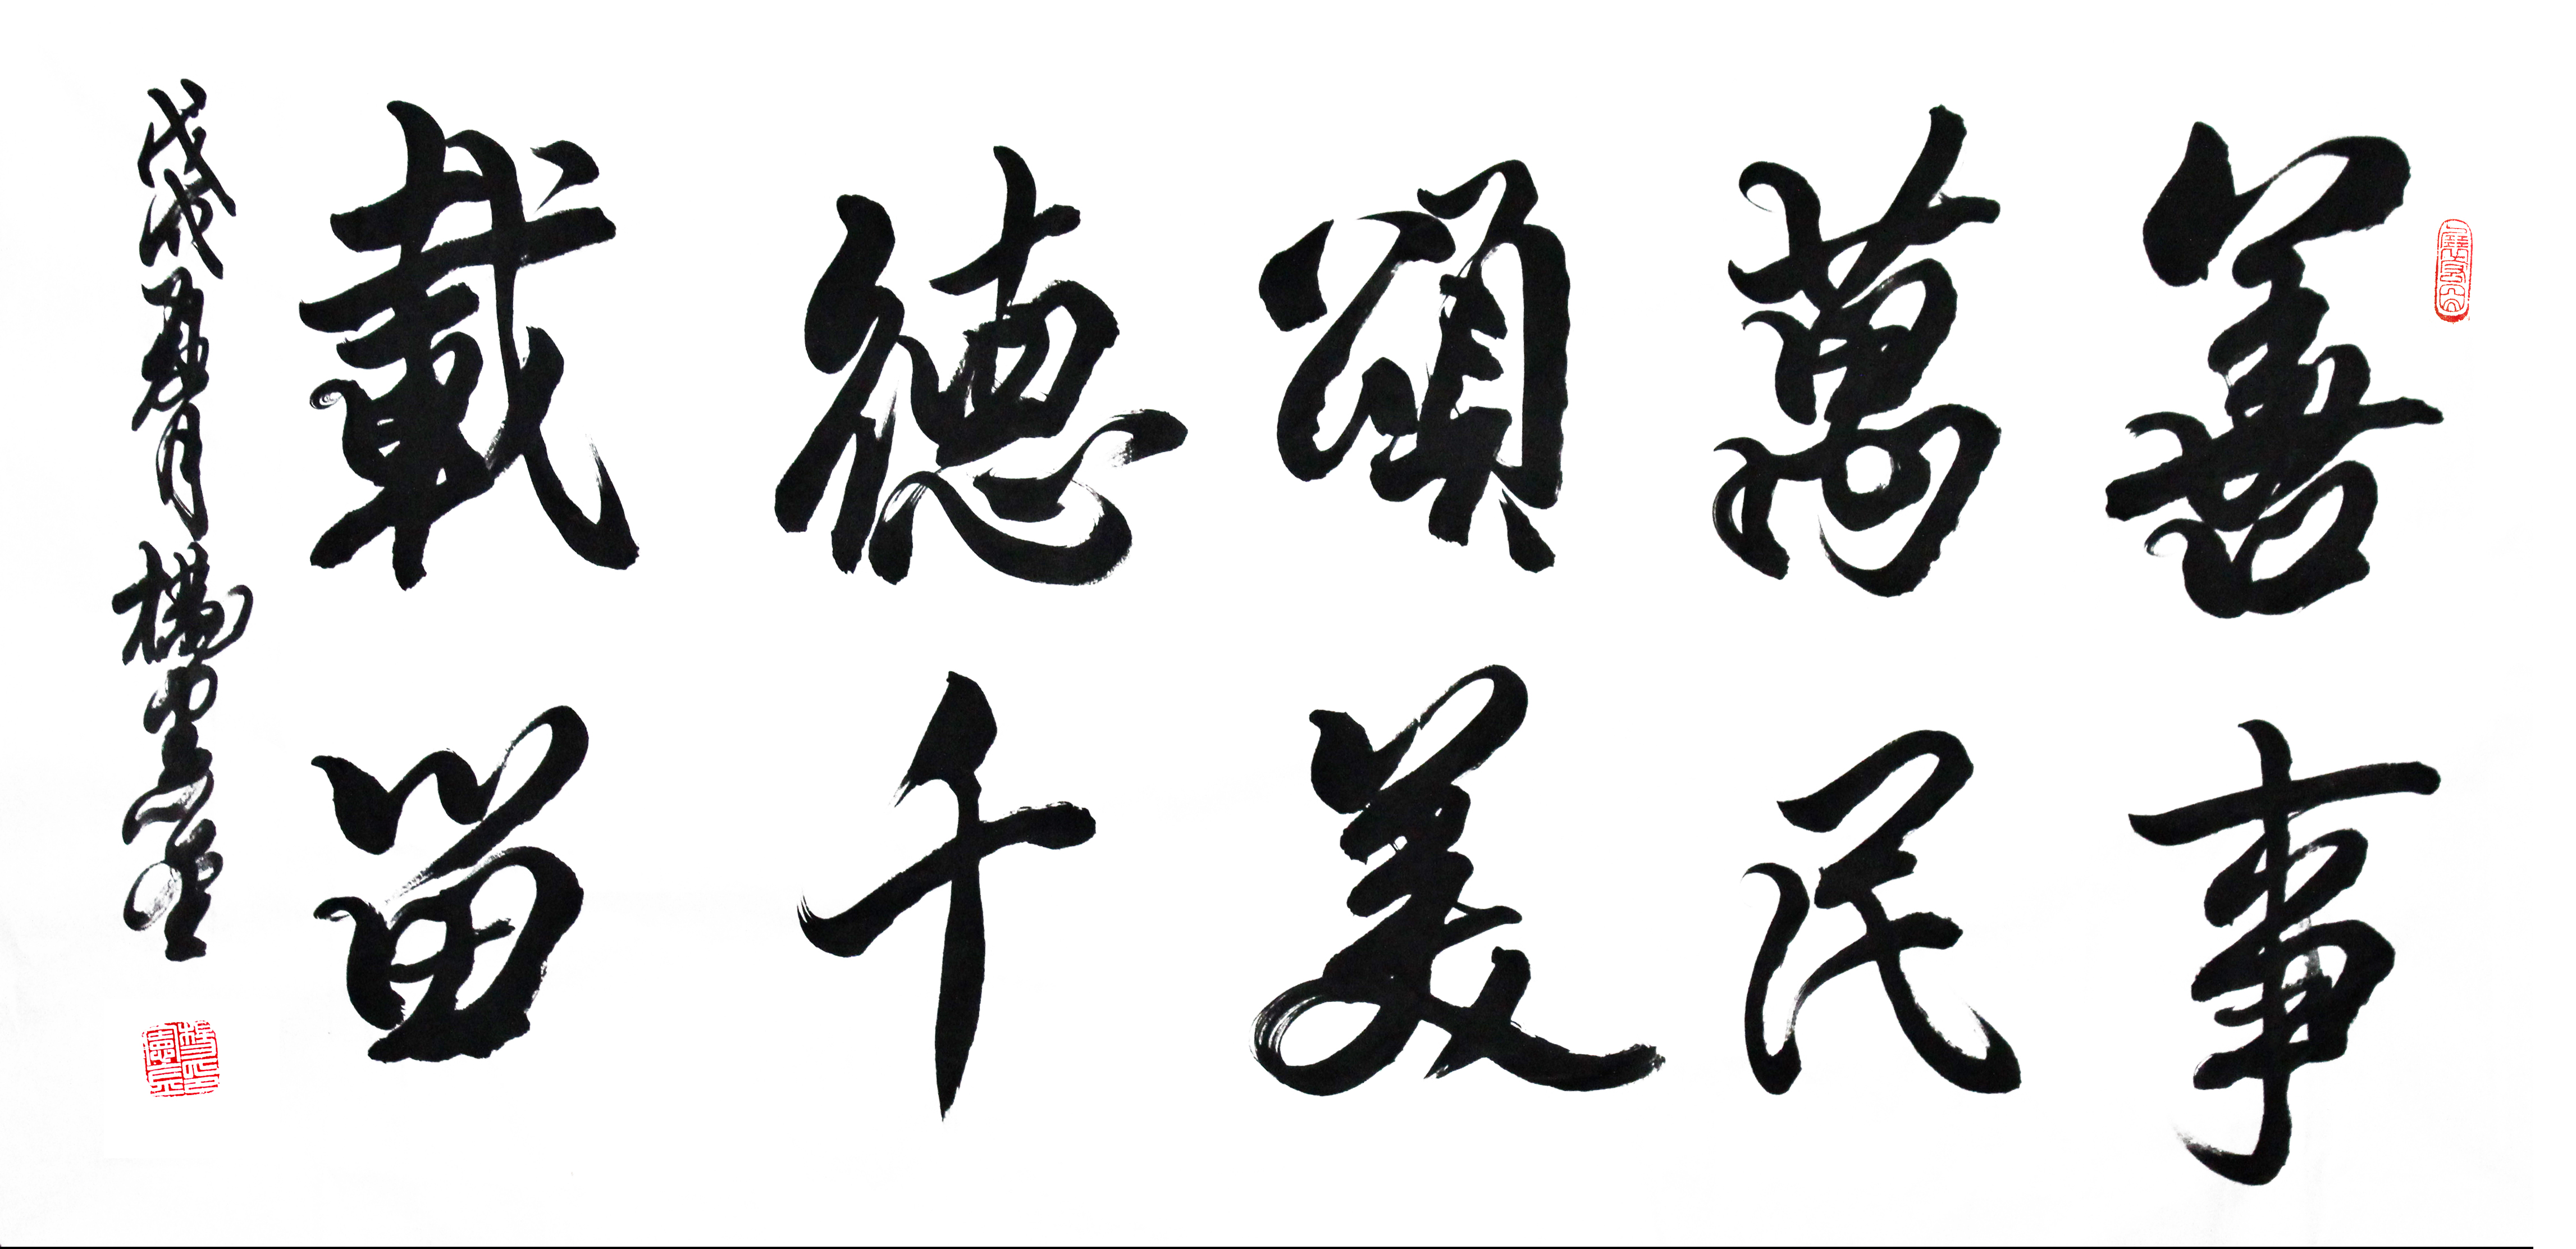 善事
萬民
頌美
德千
載留
戊戌夏月楊